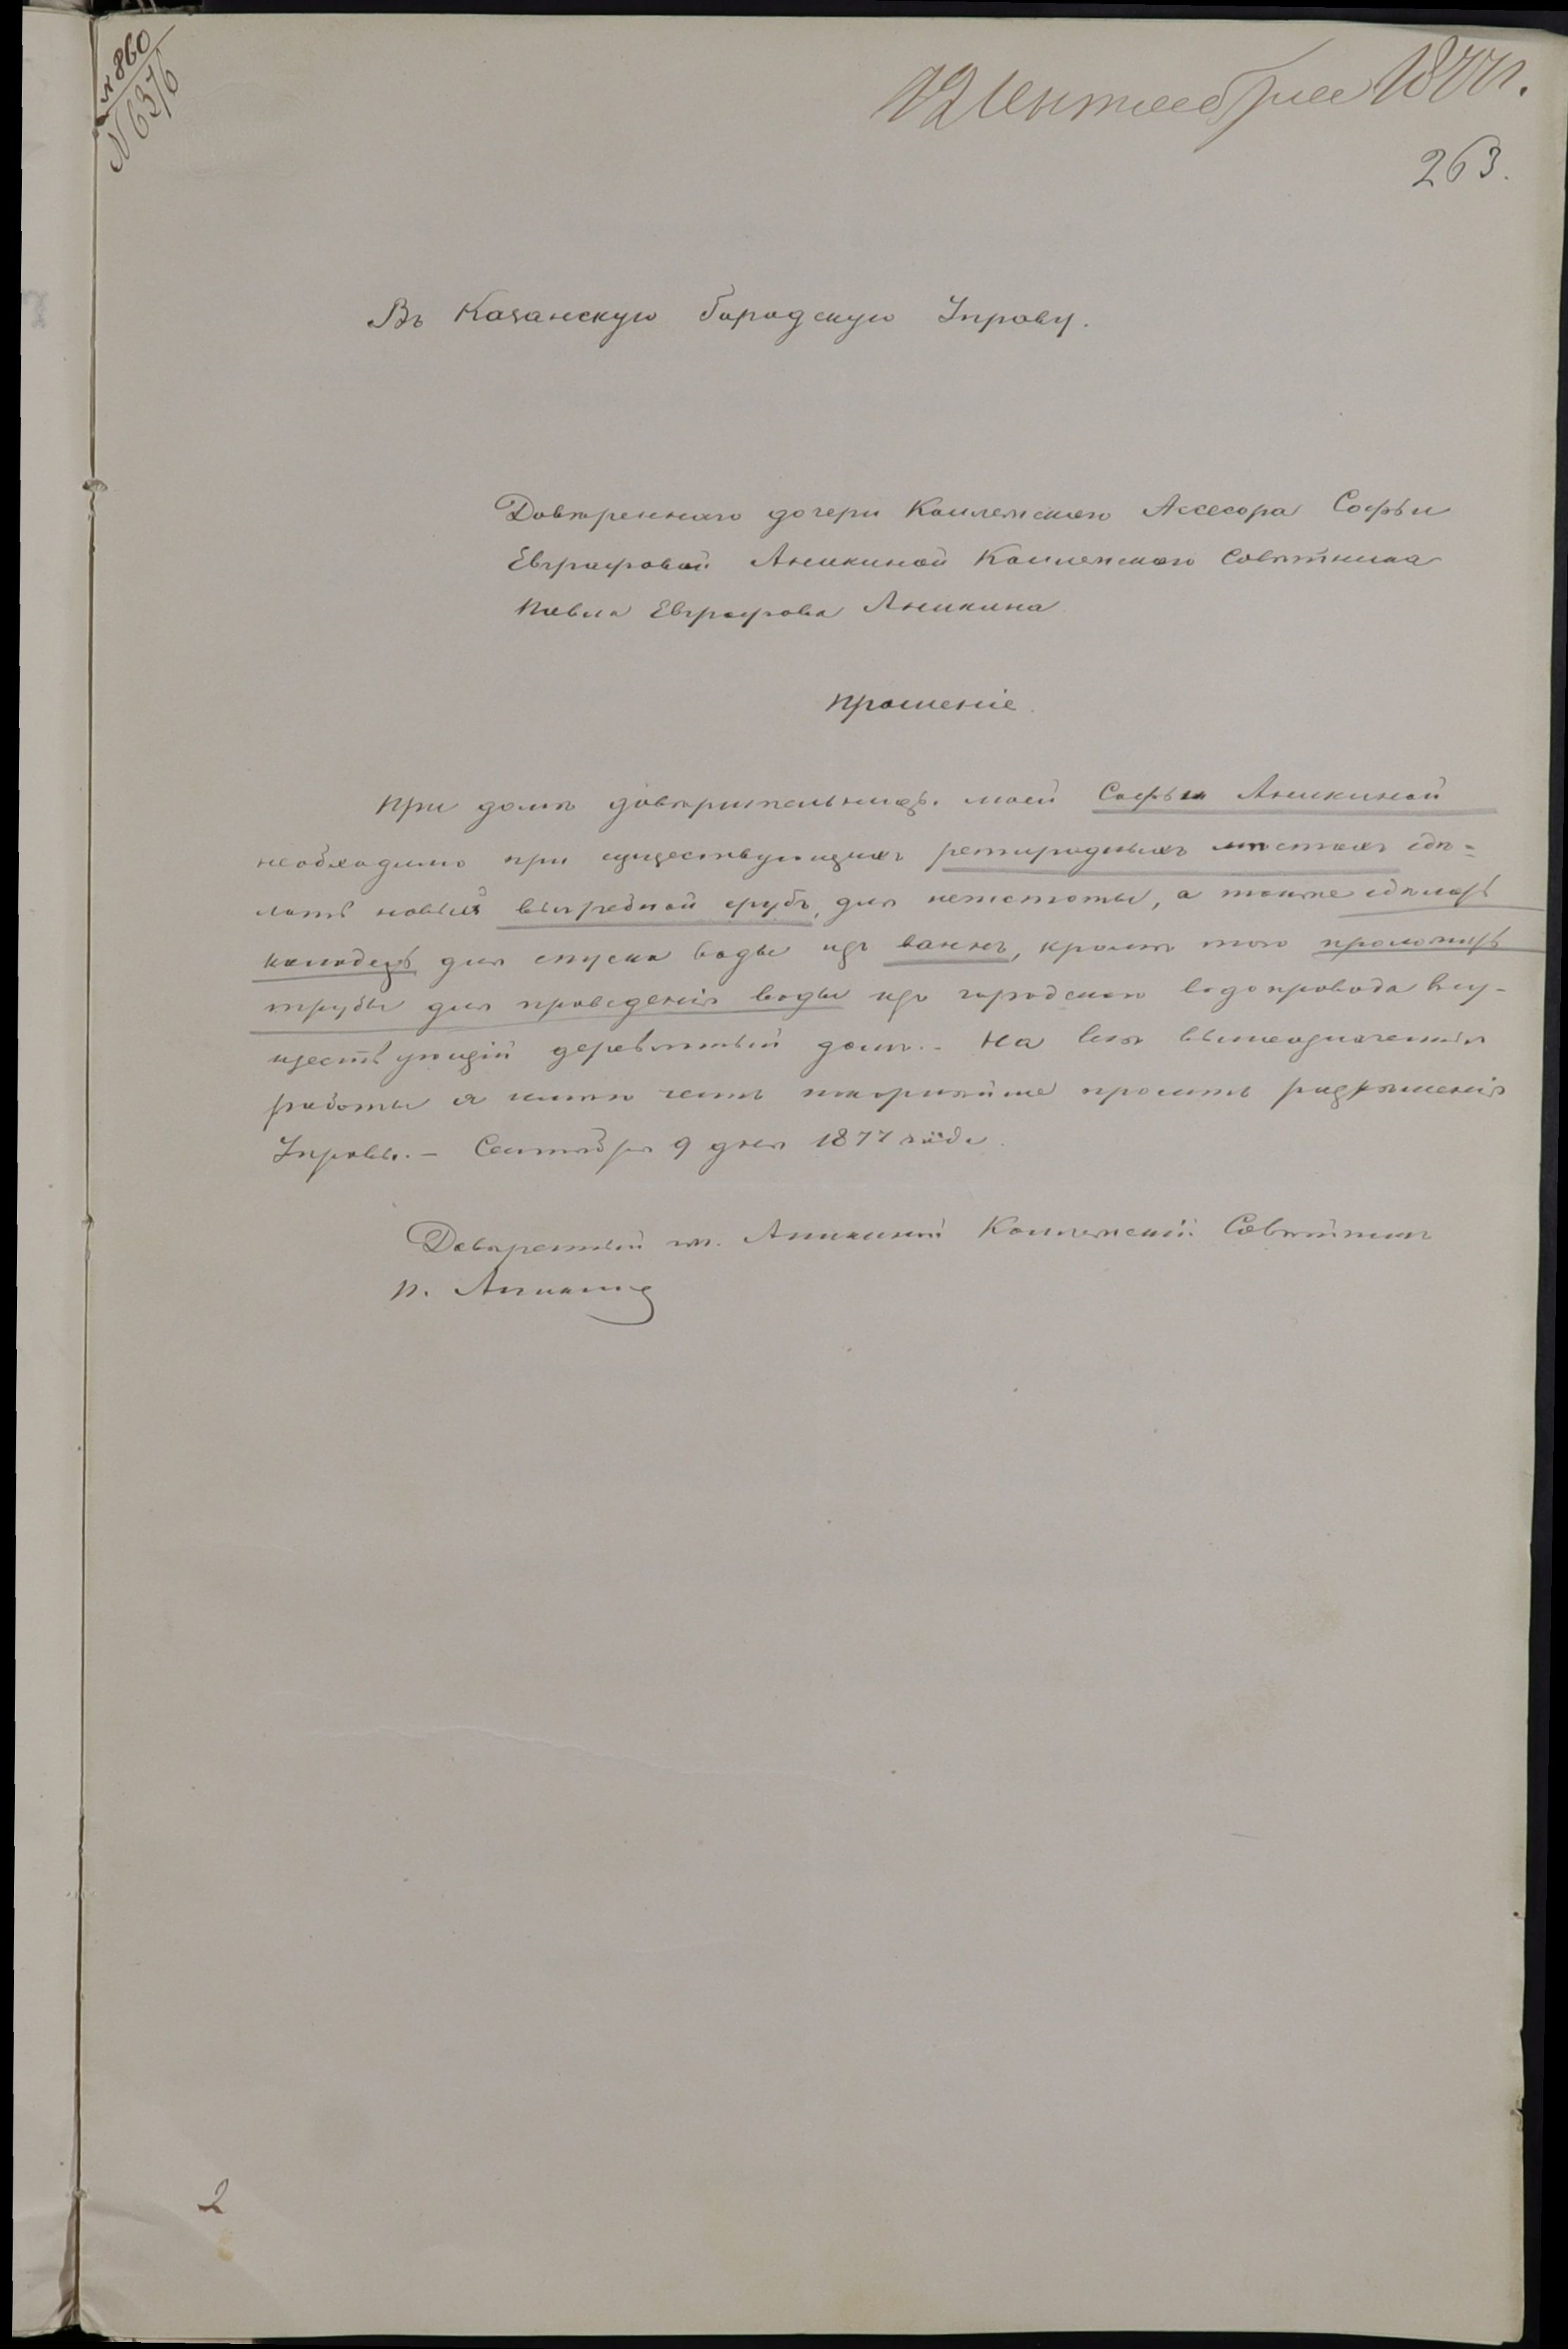 № 860
N 6376
12 Сентября 1877 г.
263.
Въ Казанскую Городскую Управу.
Довѣреннаго дочери Коллежскаго Ассесора Софьи
Евграфовой Аникиной Коллежскаго Совѣтника
Павла Евграфова Аникина
Прошеніе.
При домѣ довѣрительницы моей Софьи Аникиной
необходимо при существующихъ ретирадныхъ мѣстахъ сдѣ=
лать новый выгребной срубъ, для нечистоты, а также сдѣлать
колодезь для спуска воды изъ ваннъ, кромѣ того проложить
трубы для проведенія воды изъ городского водопровода в су-
ществующій деревянный домъ. – На всѣ вышеозначенныя
работы я имѣю честь покорнѣйше просить разрѣшенія
Управы. – Сентября 9 дня 1877 года.
Довѣренный Аникиной Коллежскій Совѣтникъ
П. Аникинъ
2